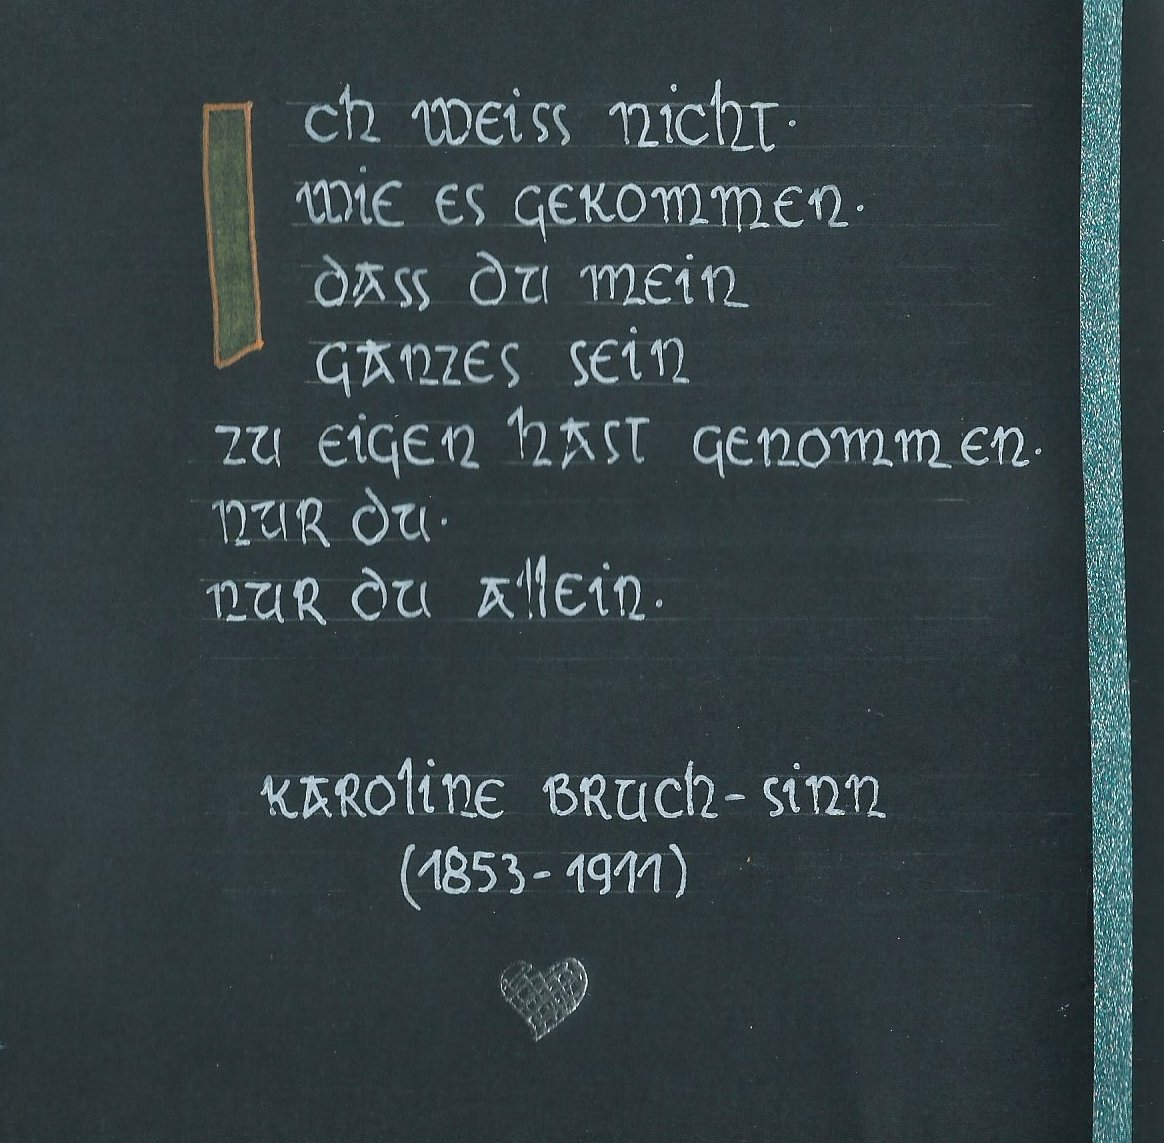 Ich weiss nicht·
wie es gekommen·
dass du mein
ganzes sein
zu eigen hast genommen·
nur du·
nur du allein·
Karoline Bruch-Sinn
(1853-1911)